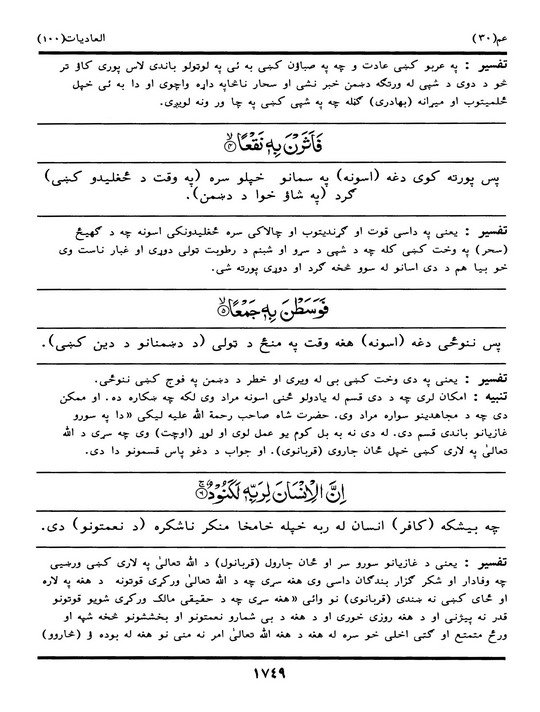 عم(۳۰) العاديات(۱۰۰)
تفسير : په عربو كښې عادت و چه په صباؤن كښې به ئې په لوټولو باندې لاس پورې كاؤ تر
څو د دوى د شپې له ورتګه دښمن خبر نشى او سحار ناڅاپه داړه واچوى او دا به ئې خپل
ځلميتوب او ميړانه (بهادرى) ګڼله چه په شپې كښې په چا ور ونه لويږى.
فَاَثَرْنَ بِهٖ نَقْعًا ﴿۴﴾
پس پورته كوى دغه (اسونه) په سمانو خپلو سره (په وقت د ځغليدو كښې)
ګرد (په شاؤ خوا د دښمن).
تفسير : يعنى په داسې قوت او ګړنديتوب او چالاكى سره ځغليدونكى اسونه چه د ګهيځ
(سحر) په وخت كښې كله چه د شپې د سړو او شبنم د رطوبت ټولى دوړى او غبار ناست وى
خو بيا هم د دى اسانو له سوو څخه ګرد او دوړى پورته شى.
فَوَسَطْنَ بِهٖ جَمْعًا ﴿۵﴾
پس ننوځى دغه (اسونه) هغه وقت په منځ د ټولى (د دښمنانو د دين كښې).
تفسير : يعنى په دى وخت كښې بى له ويرى او خطر د دښمن په فوج كښې ننوځى.
تنبيه : امكان لرى چه د دى قسم له يادولو ځنى اسونه مراد وى لكه چه ښكاره ده. او ممكن
دى چه د مجاهدينو سواره مراد وى. حضرت شاه صاحب رحمة الله عليه ليكى «دا په سورو
غازيانو باندې قسم دى. له دى نه به بل كوم يو عمل لوى او لوړ (اوچت) وى چه سړى د الله
تعالىٰ په لارى كښې خپل ځان جاروى (قربانوى). او جواب د دغو پاس قسمونو دا دى.
اِنَّ الْاِنْسَانَ لِرَبِّهٖ لَكَنُوْدٌ ﴿۶﴾
چه بيشكه (كافر) انسان له ربه خپله خامخا منكر ناشكره (د نعمتونو) دى.
تفسير : يعنى د غازيانو سورو سر او ځان جارول (قربانول) د الله تعالىٰ په لارى كښې ورښيى
چه وفادار او شكر گزار بندگان داسې وى هغه سړى چه د الله تعالىٰ وركړى قوتونه د هغه په لاره
او ځاى كښې نه ښندى (قربانوى) نو وائى «هغه سړى چه د حقيقى مالك وركړى شويو قوتونو
قدر نه پيژنى او د هغه روزى خورى او د هغه د بى شمارو نعمتونو او بخششونو څخه شپه او
ورځ متمتع او ګټى اخلى خو سره له هغه د هغه الله تعالىٰ امر نه منى نو هغه له بوده ؤ (څاروو)
۱۷۴۹